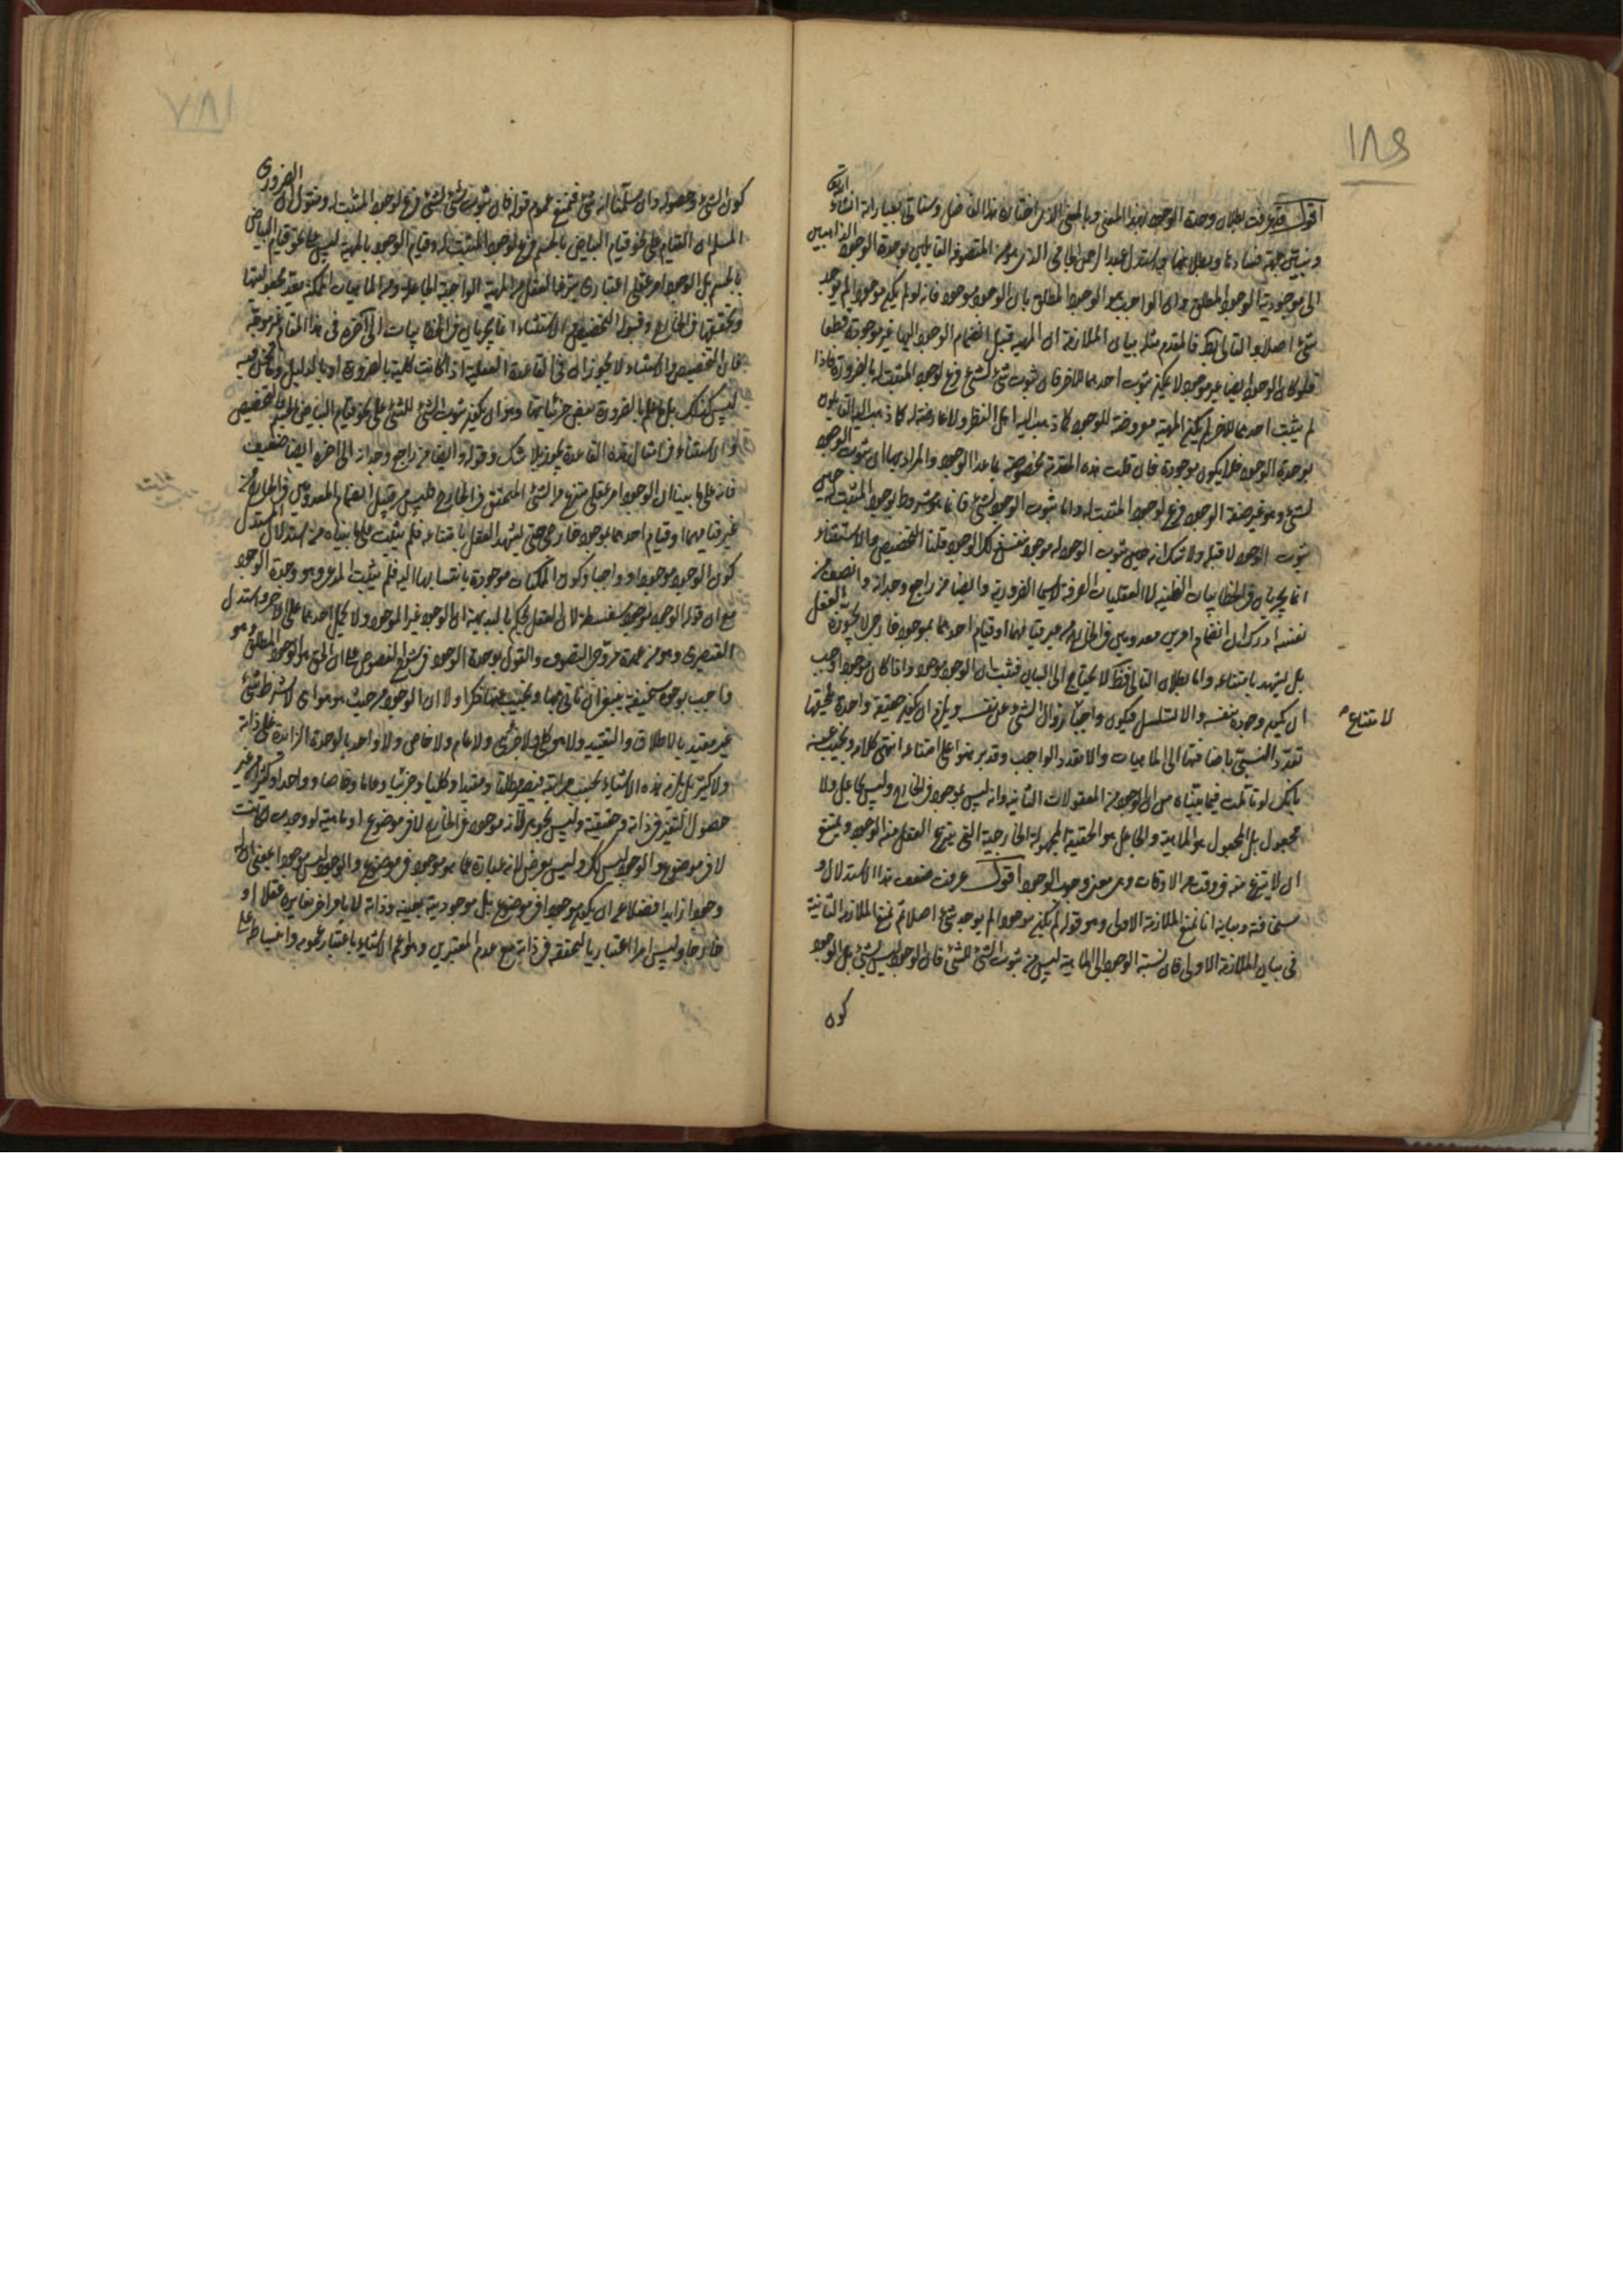 ١٨٩
اقول قد عرفت بطلان وحدة الوجود بهذا المعنى وبالمعنى الاخر اختاره هذا الفاضل وسنأتي بعباراته ان شاء الله تعالى
ونبين جهة فسادها وبطلانها واستدل عبد الرحمن الجامي الذي هو من المتصوفة القائلين بوحدة الوجود الذاهبين
الى موجودية الوجود المطلق وان الواجب هو الوجود المطلق بان الوجود موجود فانه لو لم يكن موجودا لم يوجد
شيء اصلا والتالي بط فالمقدم مثله بيان الملازمة ان المهية قبل انضمام الوجود اليها غير موجودة قطعا
فلو كان الوجود ايضا غير موجود لا يمكن ثبوت احدهما للاخر فان ثبوت شيء لشيء فرع لوجود المثبت له بالضرورة فاذا
لم يثبت احدهما للاخر لم يكن المهية معروضة للوجود كما ذهب اليه اهل النظر ولا عارضة له كما ذهب اليه القائلون
بوحدة الوجود فلا يكون موجودة فان قلت هذه المقدمة مخصوصة بما عدا الوجود والمراد بها ان ثبوت الوجود
لشيء وهو غير صفة الوجود فرع لوجود المثبت له واما ثبوت الوجود لشيء فانما هو مشروط بوجود المثبت له حين
ثبوت الوجود لا قبله ولا شك انه حين ثبوت الوجود له موجود بنفس ذلك الوجود قلنا التخصيص والاستثناء
انما يجريان في الخطابيات الظنية لا العقليات الصرفة لا سيما الضرورية وايضا من راجع وجدانه وانصف من
نفسه ادرك ان انضمام امرين معدومين في الخارج من غير قيامهما او قيام احدهما بموجود خارجي لا يجوزه العقل
بل يشهد بامتناعه واما بطلان التالي فظ لا يحتاج الى البيان فثبت ان الوجود موجود واذا كان موجودا وجب
ان يكون وجوده بنفسه والا لتسلسل فيكون واجبا زوال الشيء عن نفسه ويلزم ان يكون حقيقة واحدة يلحقها
لامتناع
تعدد النسبي باضافتها الى الماهيات والا تعدد الواجب وقد برهنوا على امتناعه انتهى كلامه ويجيب عنه
بانك لو تأملت فيما بيناه من ان الوجود من المعقولات الثانية وانه ليس بموجود في الخارج وليس بجاعل ولا
مجعول بل المجعول هو الماهية والجاعل هو الحقيقة المجهولة الخارجية التي ينتزع العقل منه الوجود ويمتنع
ان لا ينتزع منه في وقت من الاوقات وهو معنى وجوب الوجود اقول عرفت ضعف هذا الاستدلال و
سخافته وبيانه انا نمنع الملازمة الاولى وهو قوله لم يكن موجودا لم يوجد شيء اصلا ثم نمنع الملازمة الثانية
في بيان الملازمة الاولى فان نسبة الوجود الى الماهية ليس من ثبوت الشيء للشيء فان الوجود ليس بشيء بل الوجود
كون
كون الشيء وحصوله وان سلمنا انه شيء فنمنع عموم قوله فان ثبوت شيء لشيء فرع لوجود المثبت له ونقول ان الضروري
المسلم ان القيام على نحو قيام البياض بالجسم فرع لوجود المثبت له وقيام الوجود بالمهية ليس على نحو قيام البياض
بالجسم بل الوجود امر عقلي اعتباري ينتزعه العقل من المهية الواجبة الجاعلة ومن الماهيات الممكنة بعد مجعوليتها
وتحققها في الخارج وقوله التخصيص والاستثناء انما يجريان في الخطابيات الى آخره في هذا المقام غير موجه
فان التخصيص والاستثناء لا يجوزان في القاعدة العقلية اذا كانت كلية بالضرورة او بالدليل وما نحن فيه
ليس كذلك بل علم بالضرورة بعض جزئياتها وهو ان يكون ثبوت الشيء للشيء على نحو قيام البياض بالجسم والتخصيص
والاستثناء في امثال هذه القاعدة يجوز بلا شك وقوله وايضا من راجع وجدانه الى اخره ايضا ضعيف
فانه على ما بينا ان الوجود امر عقلي منتزع من الشيء المتحقق في الخارج فليس من قبيل انضمام المعدومين في الخارج من
غير قيامهما او قيام احدهما بموجود خارجي حتى يشهد العقل بامتناعه فلم يثبت على ما بيناه من استدلال المستدل
كون الوجود موجودا وواجبا وكون الممكنات موجودة بانتسابها اليه فلم يثبت المدعى وهو وحدة الوجود
مع ان قوله الوجود موجود سفسطة لان العقل يحكم بالبديهة ان الوجود غير الموجود ولا يحمل احدهما على الاخر واستدل
القيصري وهو من عمدة مروجي التصوف والقول بوحدة الوجود في شرح الفصوص على ان الحق هو الوجود المطلق وهو
واجب بوجوه سخيفة ينبغي ان نأتي بها ونجيب عنها فذكر اولا ان الوجود من حيث هو هو اي لا بشرط شيء
غير مقيد بالاطلاق والتقييد ولا هو كلي ولا جزئي ولا عام ولا خاص ولا واحد بالوحدة الزائدة على ذاته
ولا كثير بل يلزمه هذه الاشياء بحسب مراتبه فيصير مطلقا ومقيدا وكليا وجزئيا وعاما وخاصا وواحدا وكثيرا من غير
حصول التغير في ذاته وحقيقته وليس بجوهر لانه موجود في الخارج لا في موضوع او ماهية لو وجدت لكانت
لا في موضوع والوجود ليس كذلك وليس بعرض لانه عبارة عما هو موجود في موضوع والوجود ليس موجودا بمعنى ان له
وجودا زايدا فضلا عن ان يكون موجودا في موضوع بل موجوديته بعينه وذاته لا بامر اخر يغايره عقلا او
خارجا وليس امرا اعتباريا لتحققه في ذاته مع عدم المعتبرين وهو اعم الاشياء باعتبار عمومه وانبساطه على